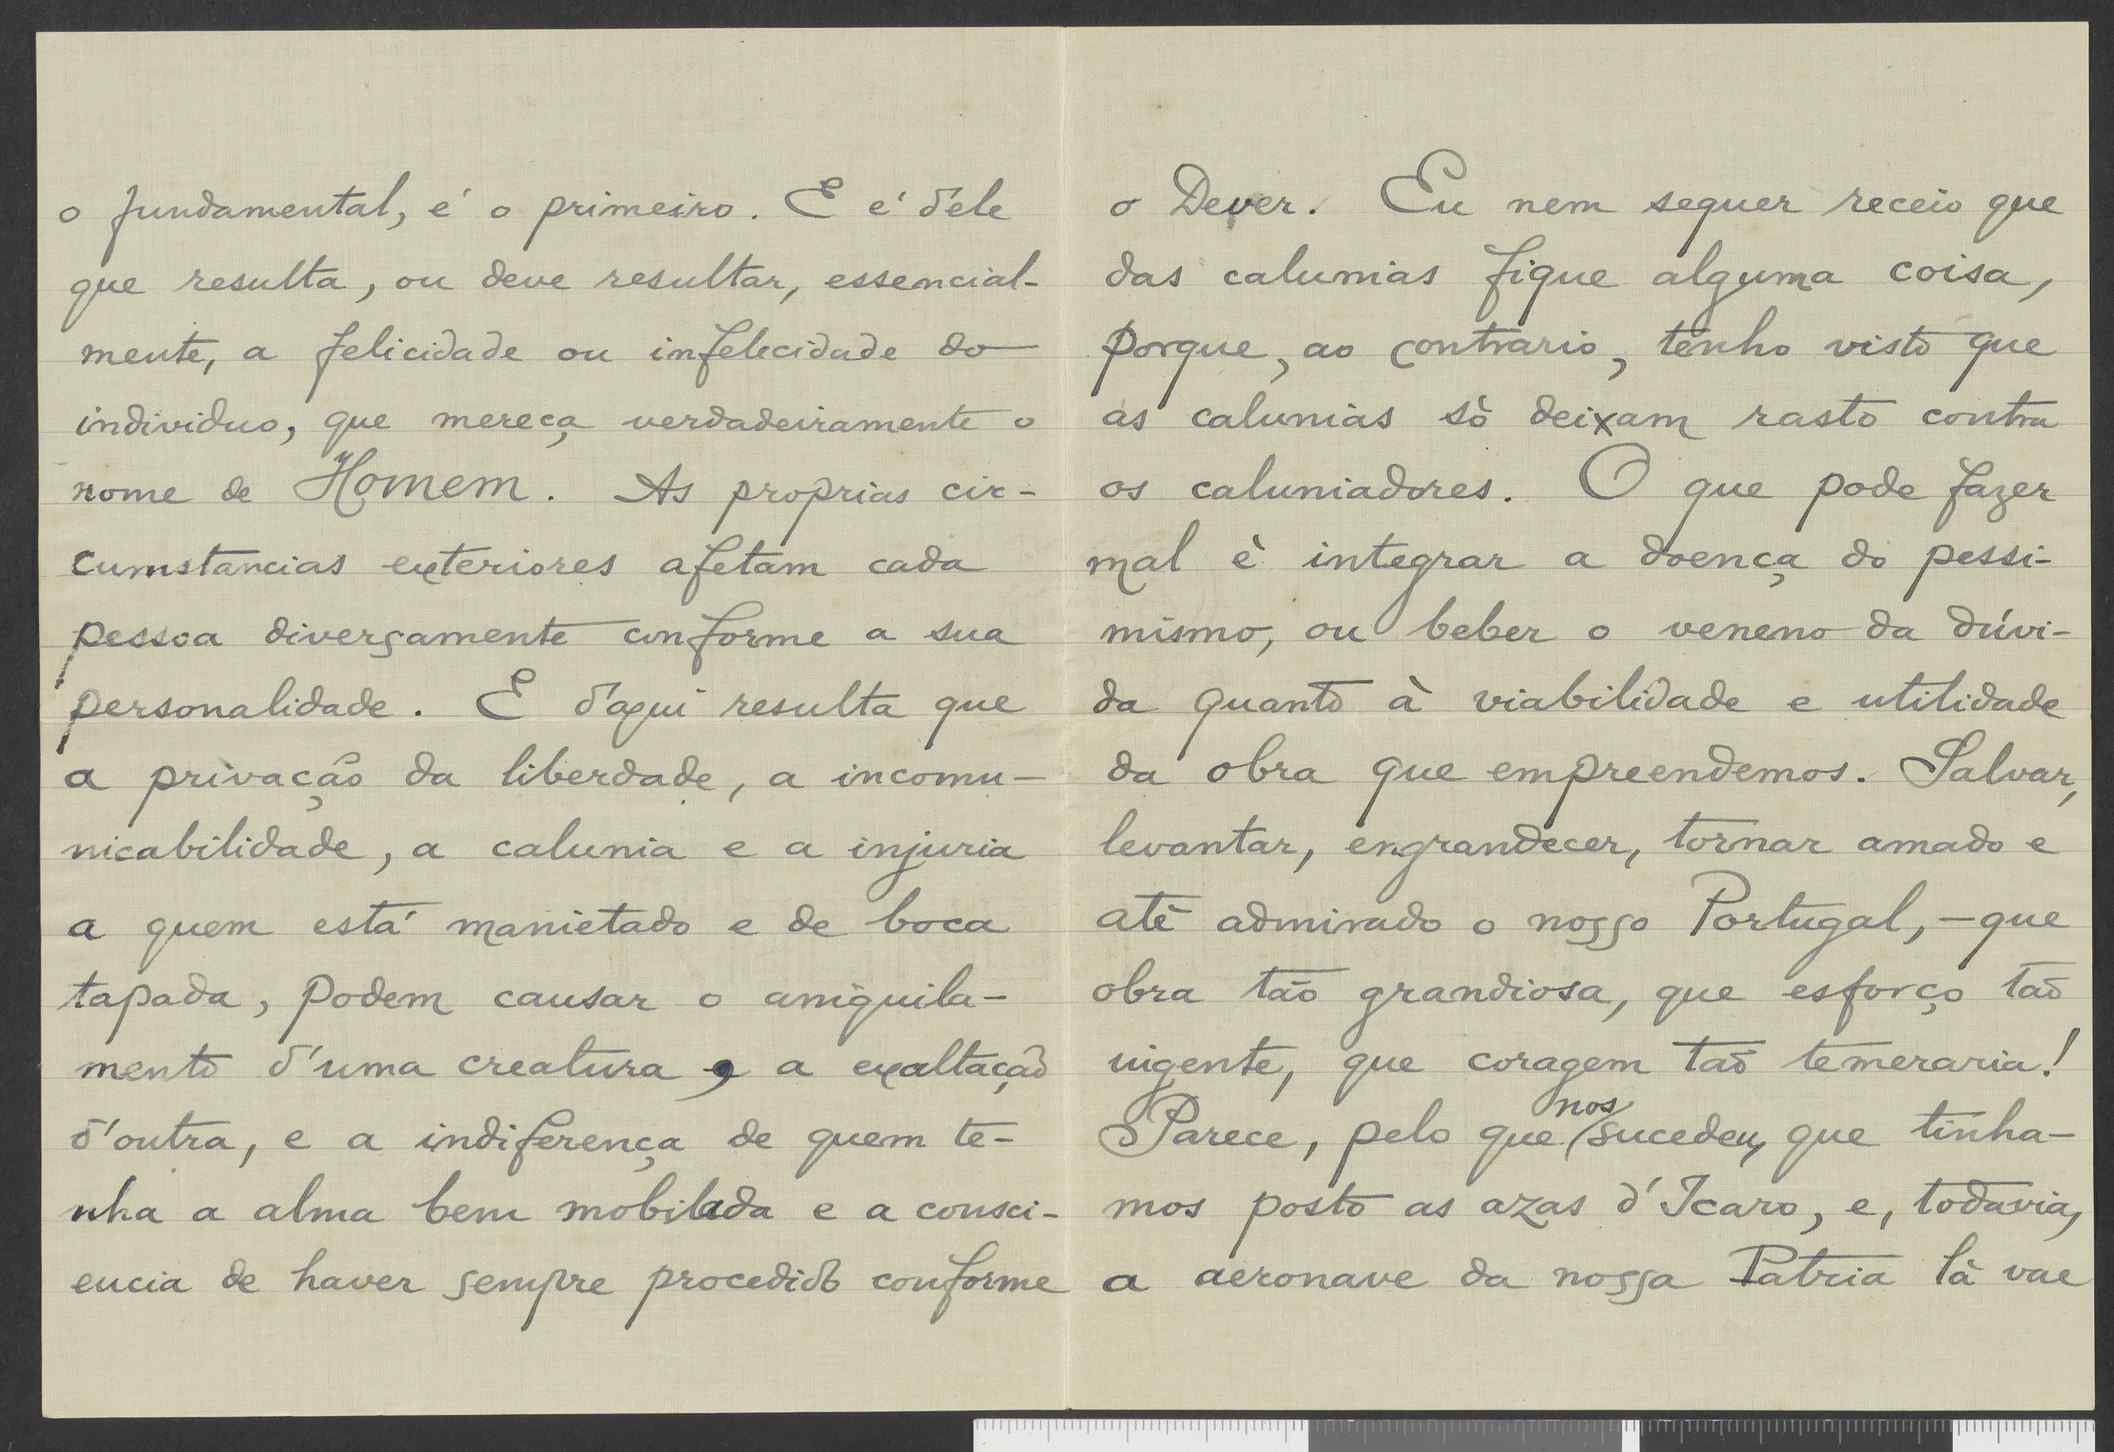 o fundamental, é o primeiro. E é d'ele
que resulta, ou deve resultar, essencial-
mente, a felicidade ou infelecidade do
individuo, que mereça verdadeiramente o
nome de Homem. As proprias cir-
cumstancias exteriores afetam cada
pessoa diversamente conforme a sua
personalidade. E d'aqui resulta que
a privação da liberdade, a incomu-
nicabilidade, a calunia e a injuria
a quem está manietado e de boca
tapada, podem causar o aniquila-
mento d'uma creatura, a exaltação
d'outra, e a indiferença de quem te-
nha a alma bem mobilada e a consci-
encia de haver sempre procedido conforme
o Dever. Eu nem sequer receio que
das calunias fique alguma coisa,
porque, ao contrario, tenho visto que
as calunias sò deixam rasto contra
os caluniadores. O que pode fazer
mal è integrar a doença do pessi-
mismo, ou beber o veneno da dúvi-
da quanto à viabilidade e utilidade
da obra que empreendemos. Salvar,
levantar, engrandecer, tornar amado e
atè admirado o nosso Portugal, - que
obra tão grandiosa, que esforço tão
uigente, que coragem tão temeraria!
Parece, pelo que nos sucedeu, que tinha-
mos posto as azas d'Icaro, e, todavia,
a aeronave da nossa Patria là vae